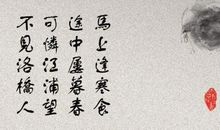 馬上逢寒食
途中屬暮春
可憐江浦望
不見洛橋人